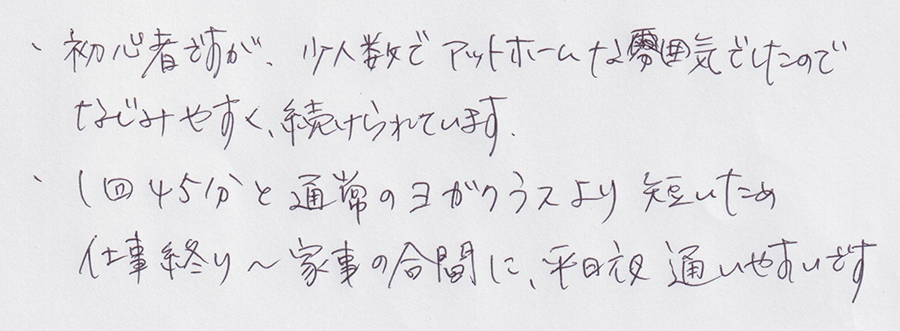 、初心者ですが、少人数でアットホームな雰囲気でしたので
なじみやすく、続けられています。
、1回45分と通常のヨガクラスより短いため
仕事終り～家事の合間に、平日夜通いやすいです